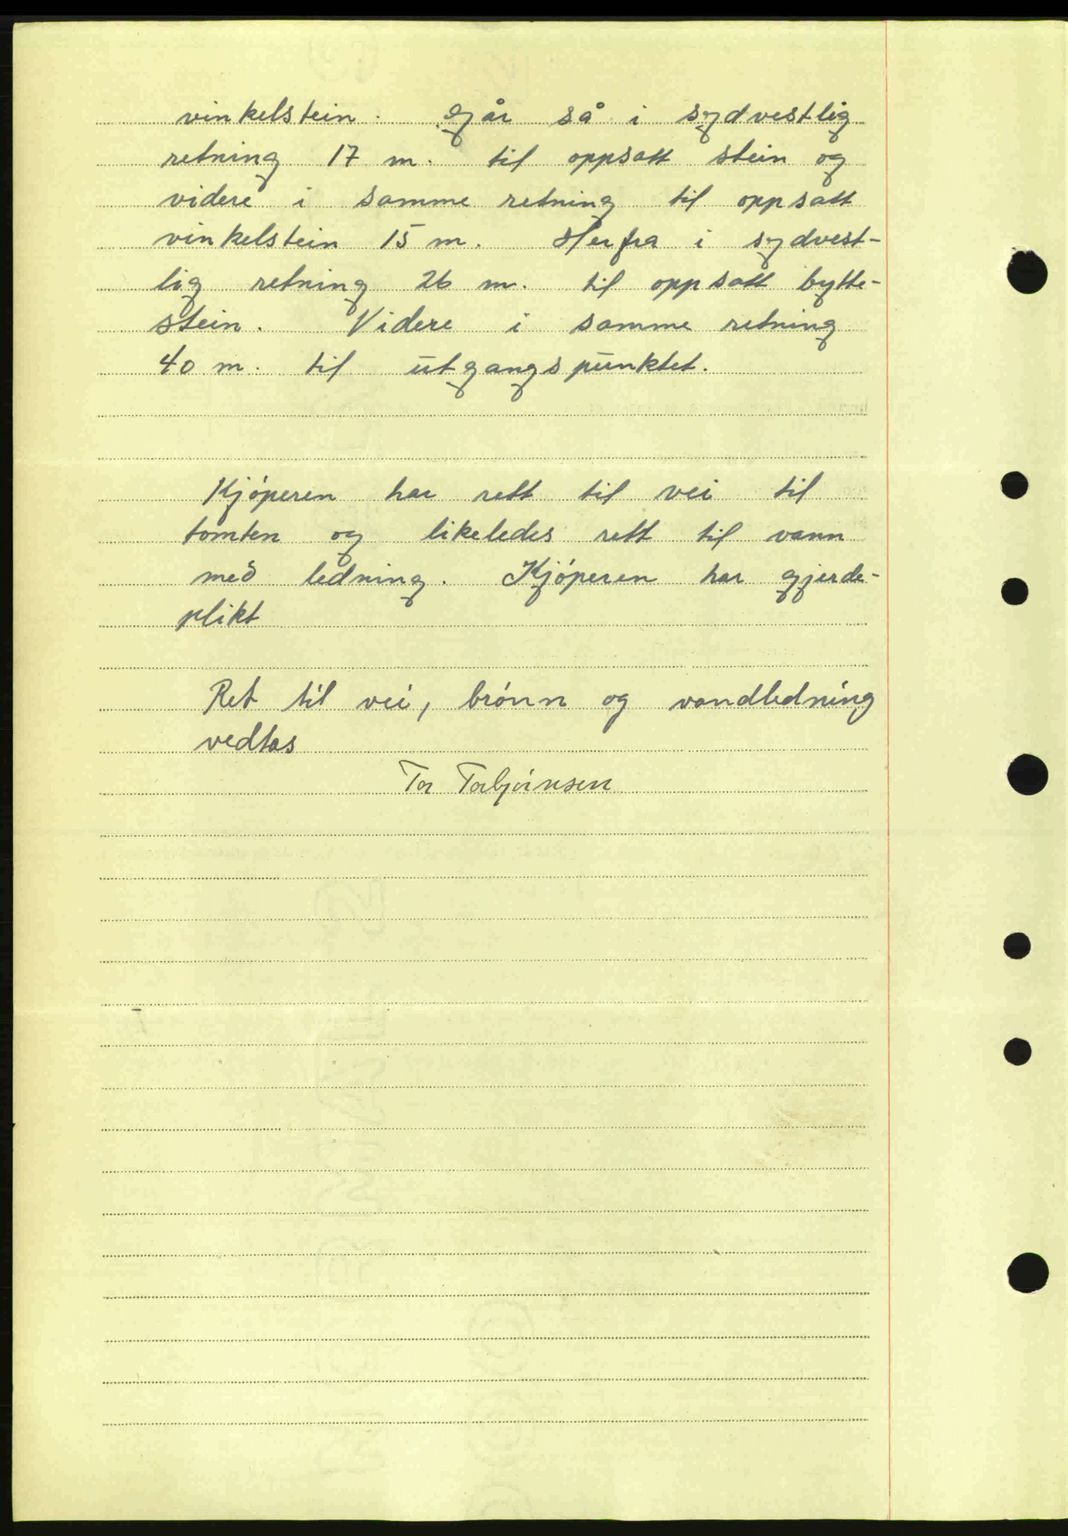 vinkelstein. Går så i sydvestlig
retning 17 m. til oppsatt stein og
videre i samme retning til oppsatt
vinkelstein 15 m. Herfra i sydvest-
lig retning 26 m. til oppsatt bytte-
stein. Videre i samme retning
40 m. til utgangspunktet.
Kjøperen har rett til vei til
tomten og likeledes rett til vann
med ledning. Kjøperen har gjerde-
plikt
Ret til vei, brønn og vandledning
vedtas
Tor Torbjørnsen